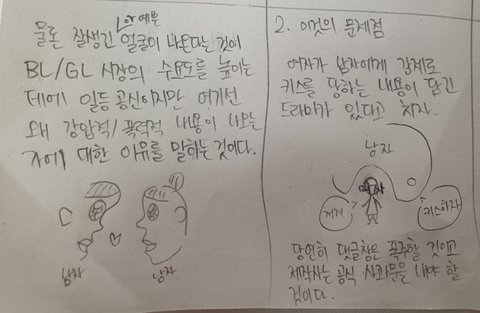 물론 잘생긴 얼굴이 나온다는 것이
or 예쁜
BL/GL 시장의 수요도를 높이는
데에 일등 공신이지만 여기선
왜 강압적/폭력적 내용이 나오는
지에 대한 이유를 말하는 것이다.
남자
남자
2. 이것의 문제점
여자가 남자에게 강제로
키스를 당하는 내용이 담긴
드라마가 있다고 치자.
남자
여자
꺼져
키스하자
당연히 댓글창은 폭주할 것이고
제작사는 공식 사과문을 내야 할
것이다.